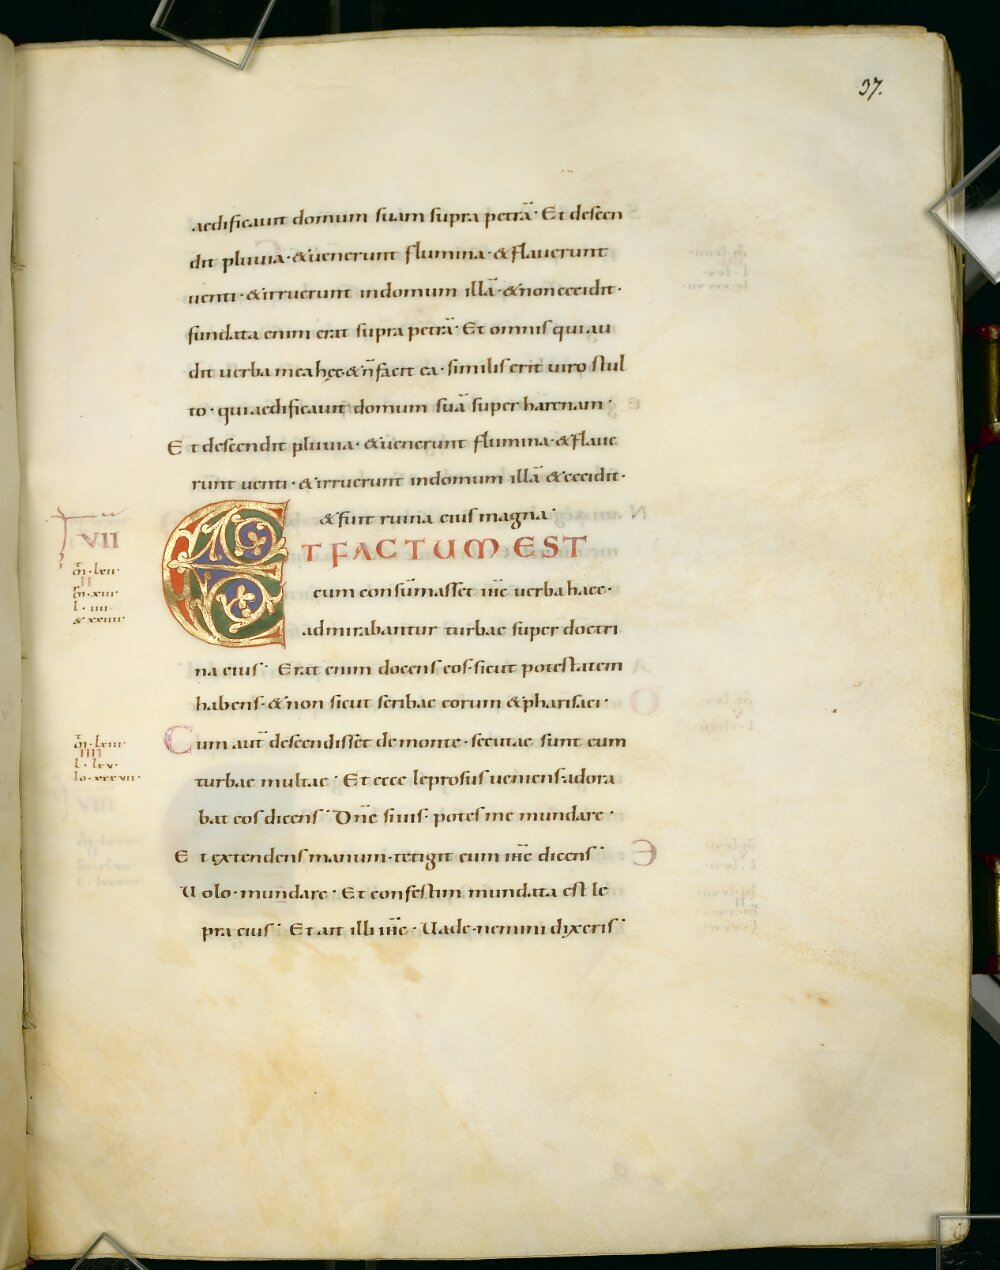 37.
aedificauit domum suam supra petrā· Et descen
dit pluuia· &uenerunt flumina· &flauerunt
uenti· &irruerunt indomum illā· &noncecidit·
fundata enim erat supra petrā· Et omnis qui au
dit uerba mea hęc· &n̄facit ea· similis erit uiro stul
to· qui aedificauit domum suā super harenam·
Et descendit pluuia· &uenerunt flumina· &flaue
runt uenti· &irruerunt indomum illā &cecidit·
&fuit ruina eius magna·
VII
ET FACTUM EST
m̄· lxii·
II
m̄· xiii·
l· iiii·
& xxiiii·
cum consūmasset ih̄c uerba haec·
admirabantur turbae super doctri
na eius· Erat enim docens eos· sicut potestatem
habens· &non sicut scribae eorum &pharisaei·
m̄· lxiii·
IIII
l· lxv·
lo· xxxvii·
Cum aut̄ descendisset de monte· secutae sunt eum
turbae multae· Et ecce leprosus ueniens· adora
bat eos dicens· Dn̄e si uis· potes me mundare·
Et extendens manum· tetigit eum ih̄c dicens·
Uolo· mundare· Et confestim mundata est le
pra eius· Et ait illi ih̄c· Uade· nemini dixeris·